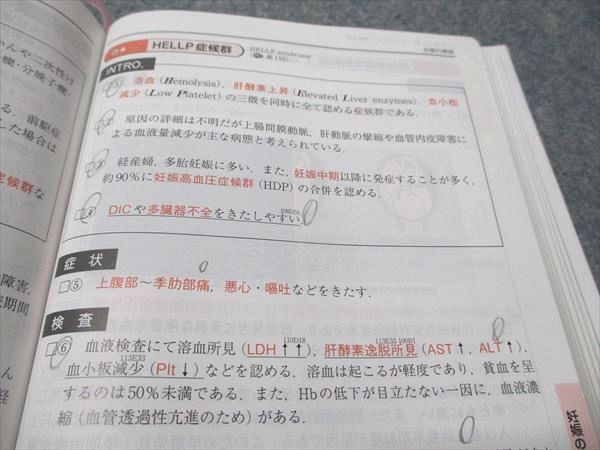 HELLP 症候群
HELLP syndrome
INTRO.
① 溶血(Hemolysis),肝酵素上昇(Elevated Liver enzymes),血小板
減少(Low Platelet)の三徴を同時に全て認める症候群である.
② 原因の詳細は不明だが上腸間膜動脈,肝動脈の攣縮や血管内皮障害に
よる血液量減少が主な病態と考えられている.
③ 経産婦,多胎妊娠に多い.また,妊娠中期以降に発症することが多く,
約90%に妊娠高血圧症候群(HDP)の合併を認める.
108D51
④ DICや多臓器不全をきたしやすい.
症 状
⑤ 上腹部~季肋部痛,悪心・嘔吐などをきたす.
検 査
110D18
113E33 100B1
⑥ 血液検査にて溶血所見(LDH↑↑),肝酵素逸脱所見(AST↑,ALT↑),
113E33
血小板減少(Plt↓)などを認める.溶血は起こるが軽度であり,貧血を呈
するのは50%未満である.また,Hbの低下が目立たない一因に,血液濃
縮(血管透過性亢進のため)がある.
妊娠の
んや一次性け
・分娩子癇,
前駆症
した場合は
症候群な
障害,
期間